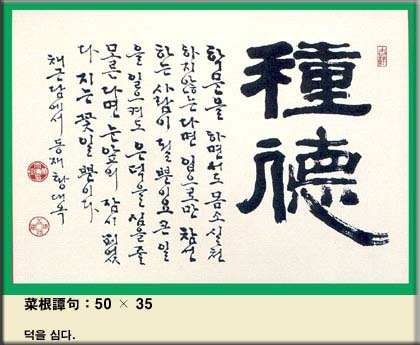 種德
학문을 하면서도 몸소 실천
하지 않는다면 입으로만 참선
하는 사람이 될 뿐이요 큰 일
을 일으켜도 은덕을 심을 줄
모른다면 눈앞의 잠시 피었
다 지는 꽃일 뿐이다.
채근담에서 동재 황대욱
菜根譚句 : 50 × 35
덕을 심다.